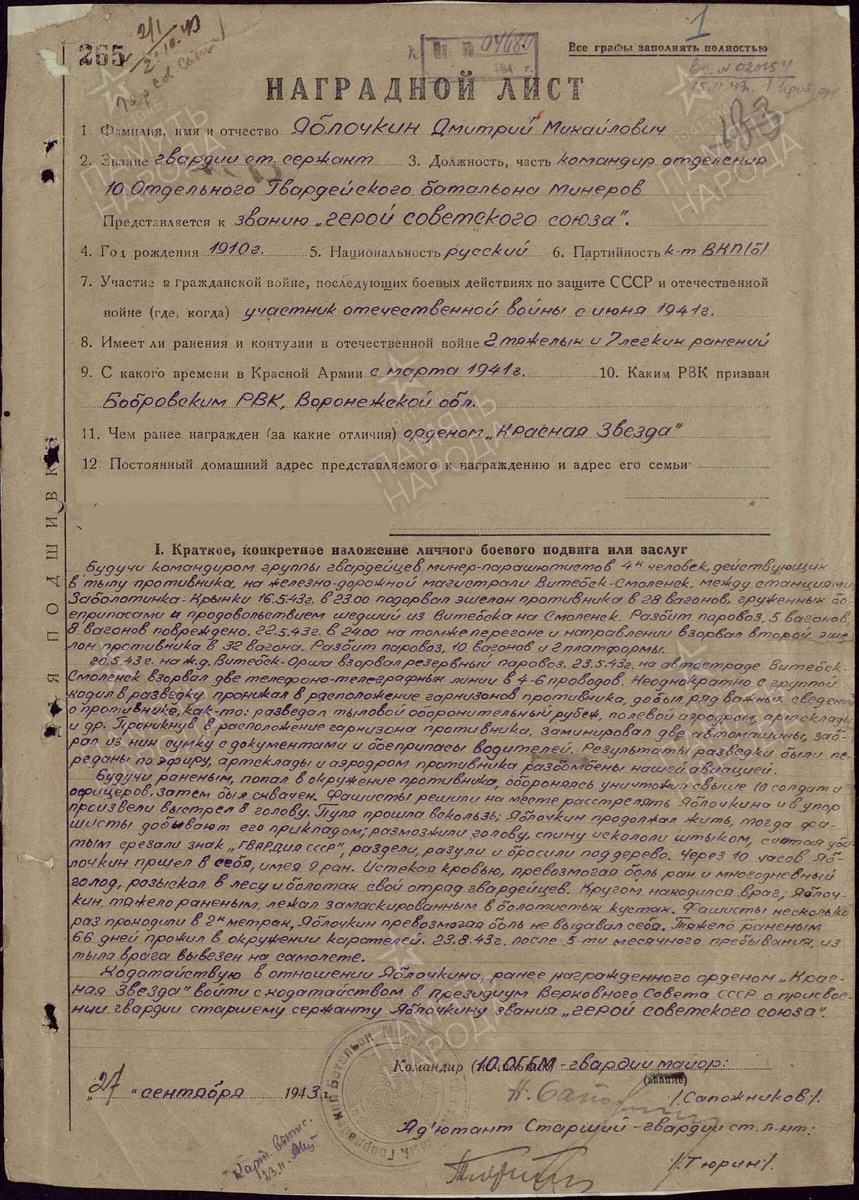 265
2/1
1
04680
Все графы заполнять полностью
НАГРАДНОЙ ЛИСТ
1. Фамилия, имя и отчество Яблочкин Дмитрий Михайлович
2. Звание гвардии ст. сержант 3. Должность, часть командир отделения
10 Отдельного Гвардейского батальона Минеров
Представляется к званию „герой советского союза".
4. Год рождения 1910 г. 5. Национальность русский 6. Партийность к-т ВКП(б)
7. Участие в гражданской войне, последующих боевых действиях по защите СССР и отечественной
войне (где, когда) участник отечественной войны с июня 1941 г.
8. Имеет ли ранения и контузии в отечественной войне 2 тяжелых и 7 легких ранений
9. С какого времени в Красной Армии с марта 1941 г. 10. Каким РВК призван
Бобровским РВК, Воронежской обл.
11. Чем ранее награжден (за какие отличия) орденом „Красная Звезда"
12. Постоянный домашний адрес представляемого к награждению и адрес его семьи
ДЛЯ ПОДШИВКИ
I. Краткое, конкретное изложение личного боевого подвига или заслуг
Будучи командиром группы гвардейцев минер-парашютистов 4х человек, действующих
в тылу противника, на железно-дорожной магистрали Витебск-Смоленск, между станциями
Заболотинка-Крынки 16.5.43г. в 23.00 подорвал эшелон противника в 28 вагонов, груженных бо-
еприпасами и продовольствием шедший из Витебска на Смоленск. Разбит паровоз, 5 вагонов,
8 вагонов повреждено. 22.5.43г. в 24.00 на томже перегоне и направлении взорвал второй эше-
лон противника в 32 вагона. Разбит паровоз, 10 вагонов и 2 платформы.
20.5.43г. на ж.д. Витебск-Орша взорвал резервный паровоз. 23.5.43г. на автостраде Витебск-
Смоленск взорвал две телефоно-телеграфных линии в 4-6 проводов. Неоднократно с группой
ходил в разведку, проникал в расположение гарнизонов противника, добыл ряд важных сведений
о противнике, как-то: разведал тыловой оборонительный рубеж, полевой аэродром, артсклады
и др. Проникнув в расположение гарнизона противника, заминировал две автомашины, заб-
рал из них сумку с документами и боеприпасы водителей. Результаты разведки были пе-
реданы по эфиру, артсклады и аэродром противника разбомбены нашей авиацией.
Будучи раненым, попал в окружение противника, обороняясь уничтожил свыше 10 солдат и
офицеров. Затем был схвачен. Фашисты решили на месте расстрелять Яблочкина и в упор
произвели выстрел в голову. Пуля прошла вскользь; Яблочкин продолжал жить, тогда фа-
шисты добивают его прикладом; размозжили голову, спину искололи штыком, считая уби-
тым срезали знак „ГВАРДИЯ СССР", раздели, разули и бросили под дерево. Через 10 часов Яб-
лочкин пршел в себя, имея 9 ран. Истекая кровью, превозмогая боль ран и многодневный
голод, розыскал в лесу и болотах свой отряд гвардейцев. Кругом находился враг; Яблоч-
кин, тяжело раненым, лежал замаскированным в болотистых кустах. Фашисты несколько
раз проходили в 2х метрах, Яблочкин превозмогая боль не выдавал себя. Тяжело раненым
66 дней прожил в окружении карателей. 23.8.43г. после 5-ти месячного пребывания, из
тыла врага вывезен на самолете.
Ходатайствую в отношении Яблочкина, ранее награжденного орденом „Крас-
ная Звезда" войти с ходатайством в президиум Верховного Совета СССР о присвое-
нии гвардии старшему сержанту Яблочкину звания „герой советского союза".
Командир 10 ОГБМ - гвардии майор:
(звание)
„27" сентября 1943 г.
/Сапожников/.
Ад'ютант Старший - гвардии ст. л-нт:
/Тюрин/.
ПАМЯТЬ НАРОДА